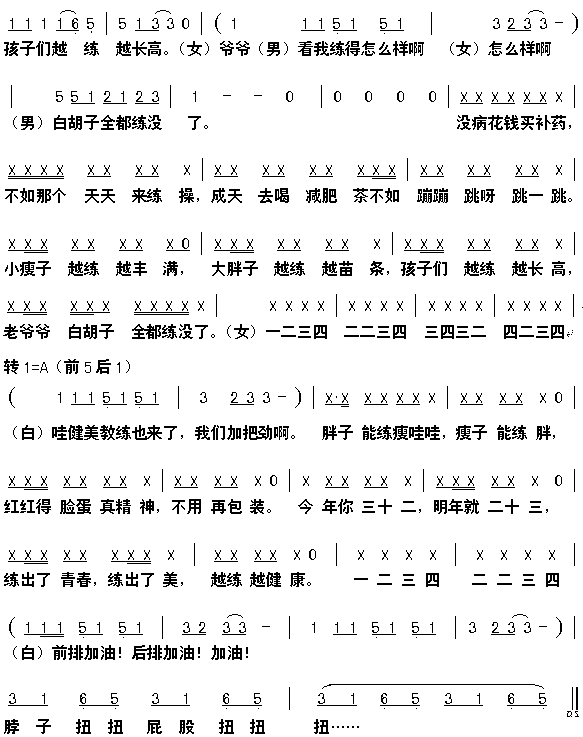 1 1 1 1 6 5 | 5 1 3 3 0 | ( 1 1 1 5 1 5 1 | 3 2 3 3 - )
孩子们越 练 越长高。（女）爷爷（男）看我练得怎么样啊 （女）怎么样啊
| 5 5 1 2 1 2 3 | 1 - - 0 | 0 0 0 0 | X X X X X X X
（男）白胡子全都练没 了。 没病花钱买补药，
X X X X X X X X X | X X X X X X X X X | X X X X X X X
不如那个 天天 来练 操，成天 去喝 减肥 茶不如 蹦蹦 跳呀 跳一 跳。
X X X X X X X X 0 | X X X X X X X X | X X X X X X X X
小瘦子 越练 越丰 满， 大胖子 越练 越苗 条，孩子们 越练 越长 高，
X X X X X X X X X X X | X X X X | X X X X | X X X X | X X X X |
老爷爷 白胡子 全都练没了。（女）一二三四 二二三四 三四三二 四二三四
转1=A（前5后1）
( 1 1 1 5 1 5 1 | 3 2 3 3 - ) | X·X X X X X X | X X X X X 0 |
（白）哇健美教练也来了，我们加把劲啊。 胖子 能练瘦哇哇，瘦子 能练 胖，
X X X X X X X X | X X X X X 0 | X X X X X X | X X X X X X 0 |
红红得 脸蛋 真精 神，不用 再包 装。 今 年你 三十 二，明年就 二十 三，
X X X X X X X X X | X X X X X 0 | X X X X | X X X X
练出了 青春，练出了 美， 越练 越健 康。 一 二 三 四 二 二 三 四
( 1 1 1 5 1 5 1 | 3 2 3 3 - | 1 1 1 5 1 5 1 | 3 2 3 3 - ) |
（白）前排加油！后排加油！加油！
3 1 6 5 3 1 6 5 | 3 1 6 5 3 1 6 5 ‖
脖 子 扭 扭 屁 股 扭 扭 扭……